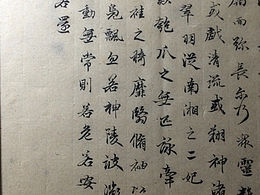 厲而彌長尔乃衆靈雜
或戲清流或翔神渚
翠羽從南湘之二妃
歎匏瓜之無匹詠牽
袿之猗靡翳脩袖以
鳧飄忽若神陵波微
動無常則若危若安
若還